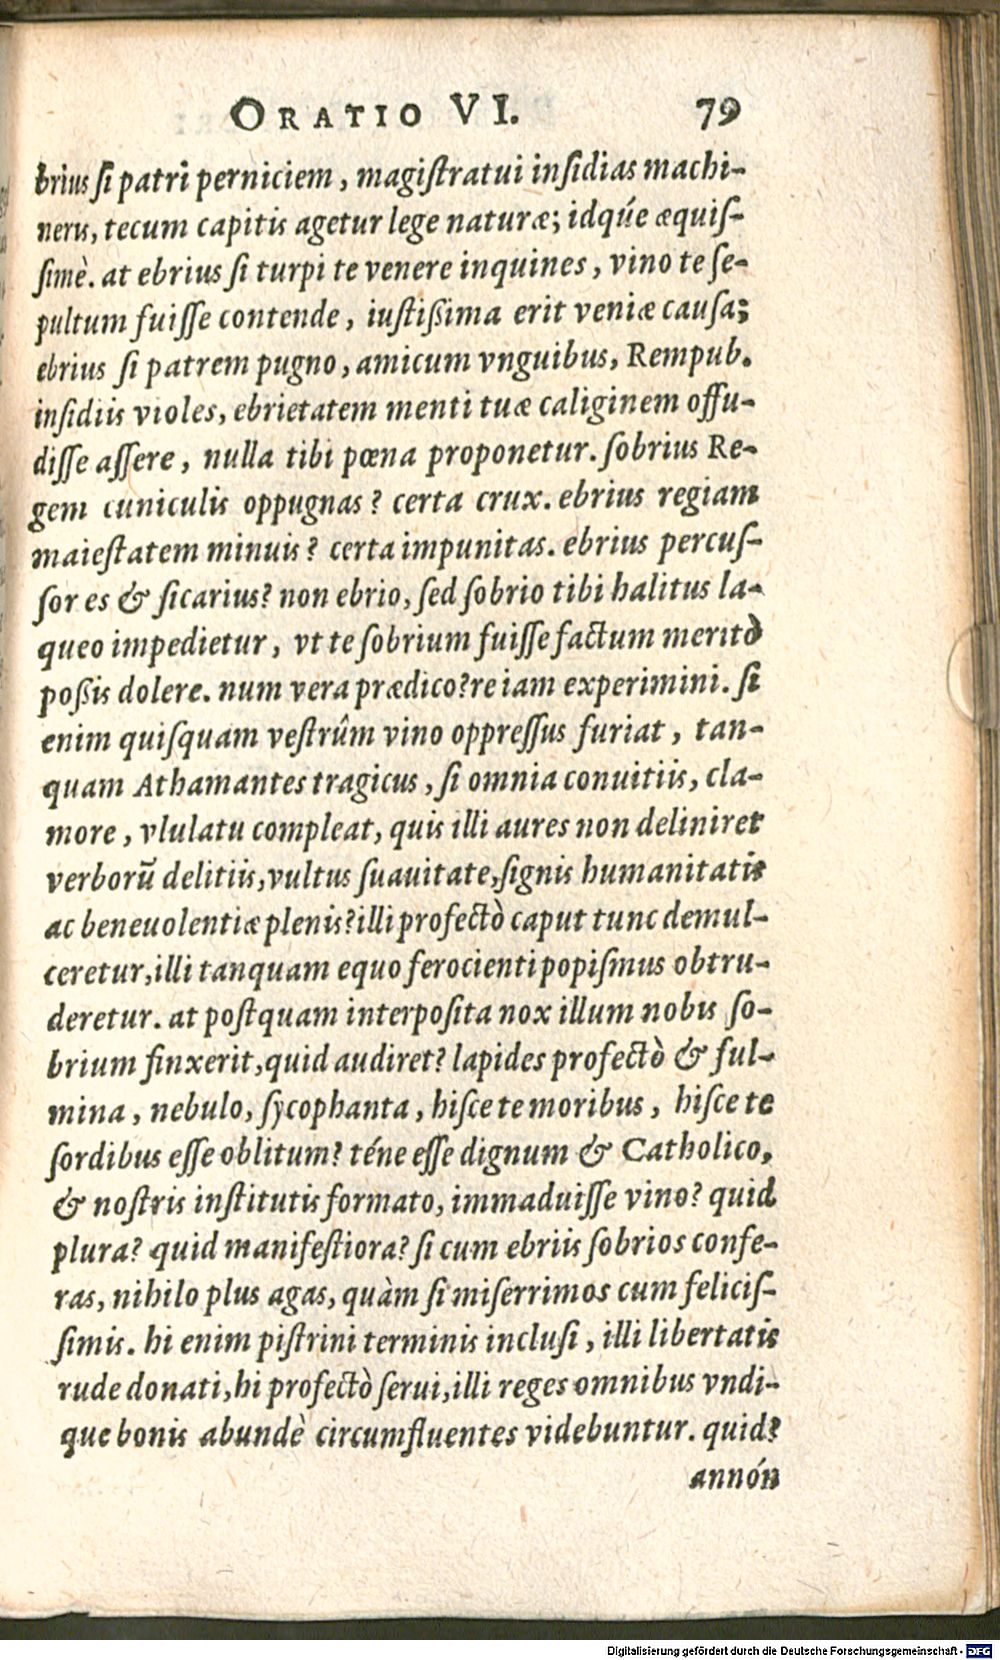 ORATIO VI. 79
brius ſi patri perniciem, magiſtratui inſidias machi-
neris, tecum capitis agetur lege naturæ; idq́ue æquiſ-
ſimè. at ebrius ſi turpi te venere inquines, vino te ſe-
pultum fuiſſe contende, iuſtißima erit veniæ cauſa;
ebrius ſi patrem pugno, amicum vnguibus, Rempub.
inſidiis violes, ebrietatem menti tuæ caliginem offu-
diſſe aſſere, nulla tibi pœna proponetur. ſobrius Re-
gem cuniculis oppugnas? certa crux. ebrius regiam
maieſtatem minuis? certa impunitas. ebrius percuſ-
ſor es & ſicarius? non ebrio, ſed ſobrio tibi halitus la-
queo impedietur, vt te ſobrium fuiſſe factum meritò
poßis dolere. num vera prædico? re iam experimini. ſi
enim quiſquam veſtrûm vino oppreſſus furiat, tan-
quam Athamantes tragicus, ſi omnia conuitiis, cla-
more, vlulatu compleat, quis illi aures non deliniret
verborũ delitiis, vultus ſuauitate, ſignis humanitatis
ac beneuolentiæ plenis? illi profectò caput tunc demul-
ceretur, illi tanquam equo ferocienti popiſmus obtru-
deretur. at poſtquam interpoſita nox illum nobis ſo-
brium finxerit, quid audiret? lapides profectò & ful-
mina, nebulo, ſycophanta, hiſce te moribus, hiſce te
ſordibus eſſe oblitum? téne eſſe dignum & Catholico,
& noſtris inſtitutis formato, immaduiſſe vino? quid
plura? quid manifeſtiora? ſi cum ebriis ſobrios confe-
ras, nihilo plus agas, quàm ſi miſerrimos cum feliciſ-
ſimis. hi enim piſtrini terminis incluſi, illi libertatis
rude donati, hi profectò ſerui, illi reges omnibus vndi-
que bonis abundè circumfluentes videbuntur. quid?
annón
Digitalisierung gefördert durch die Deutsche Forschungsgemeinschaft - DFG